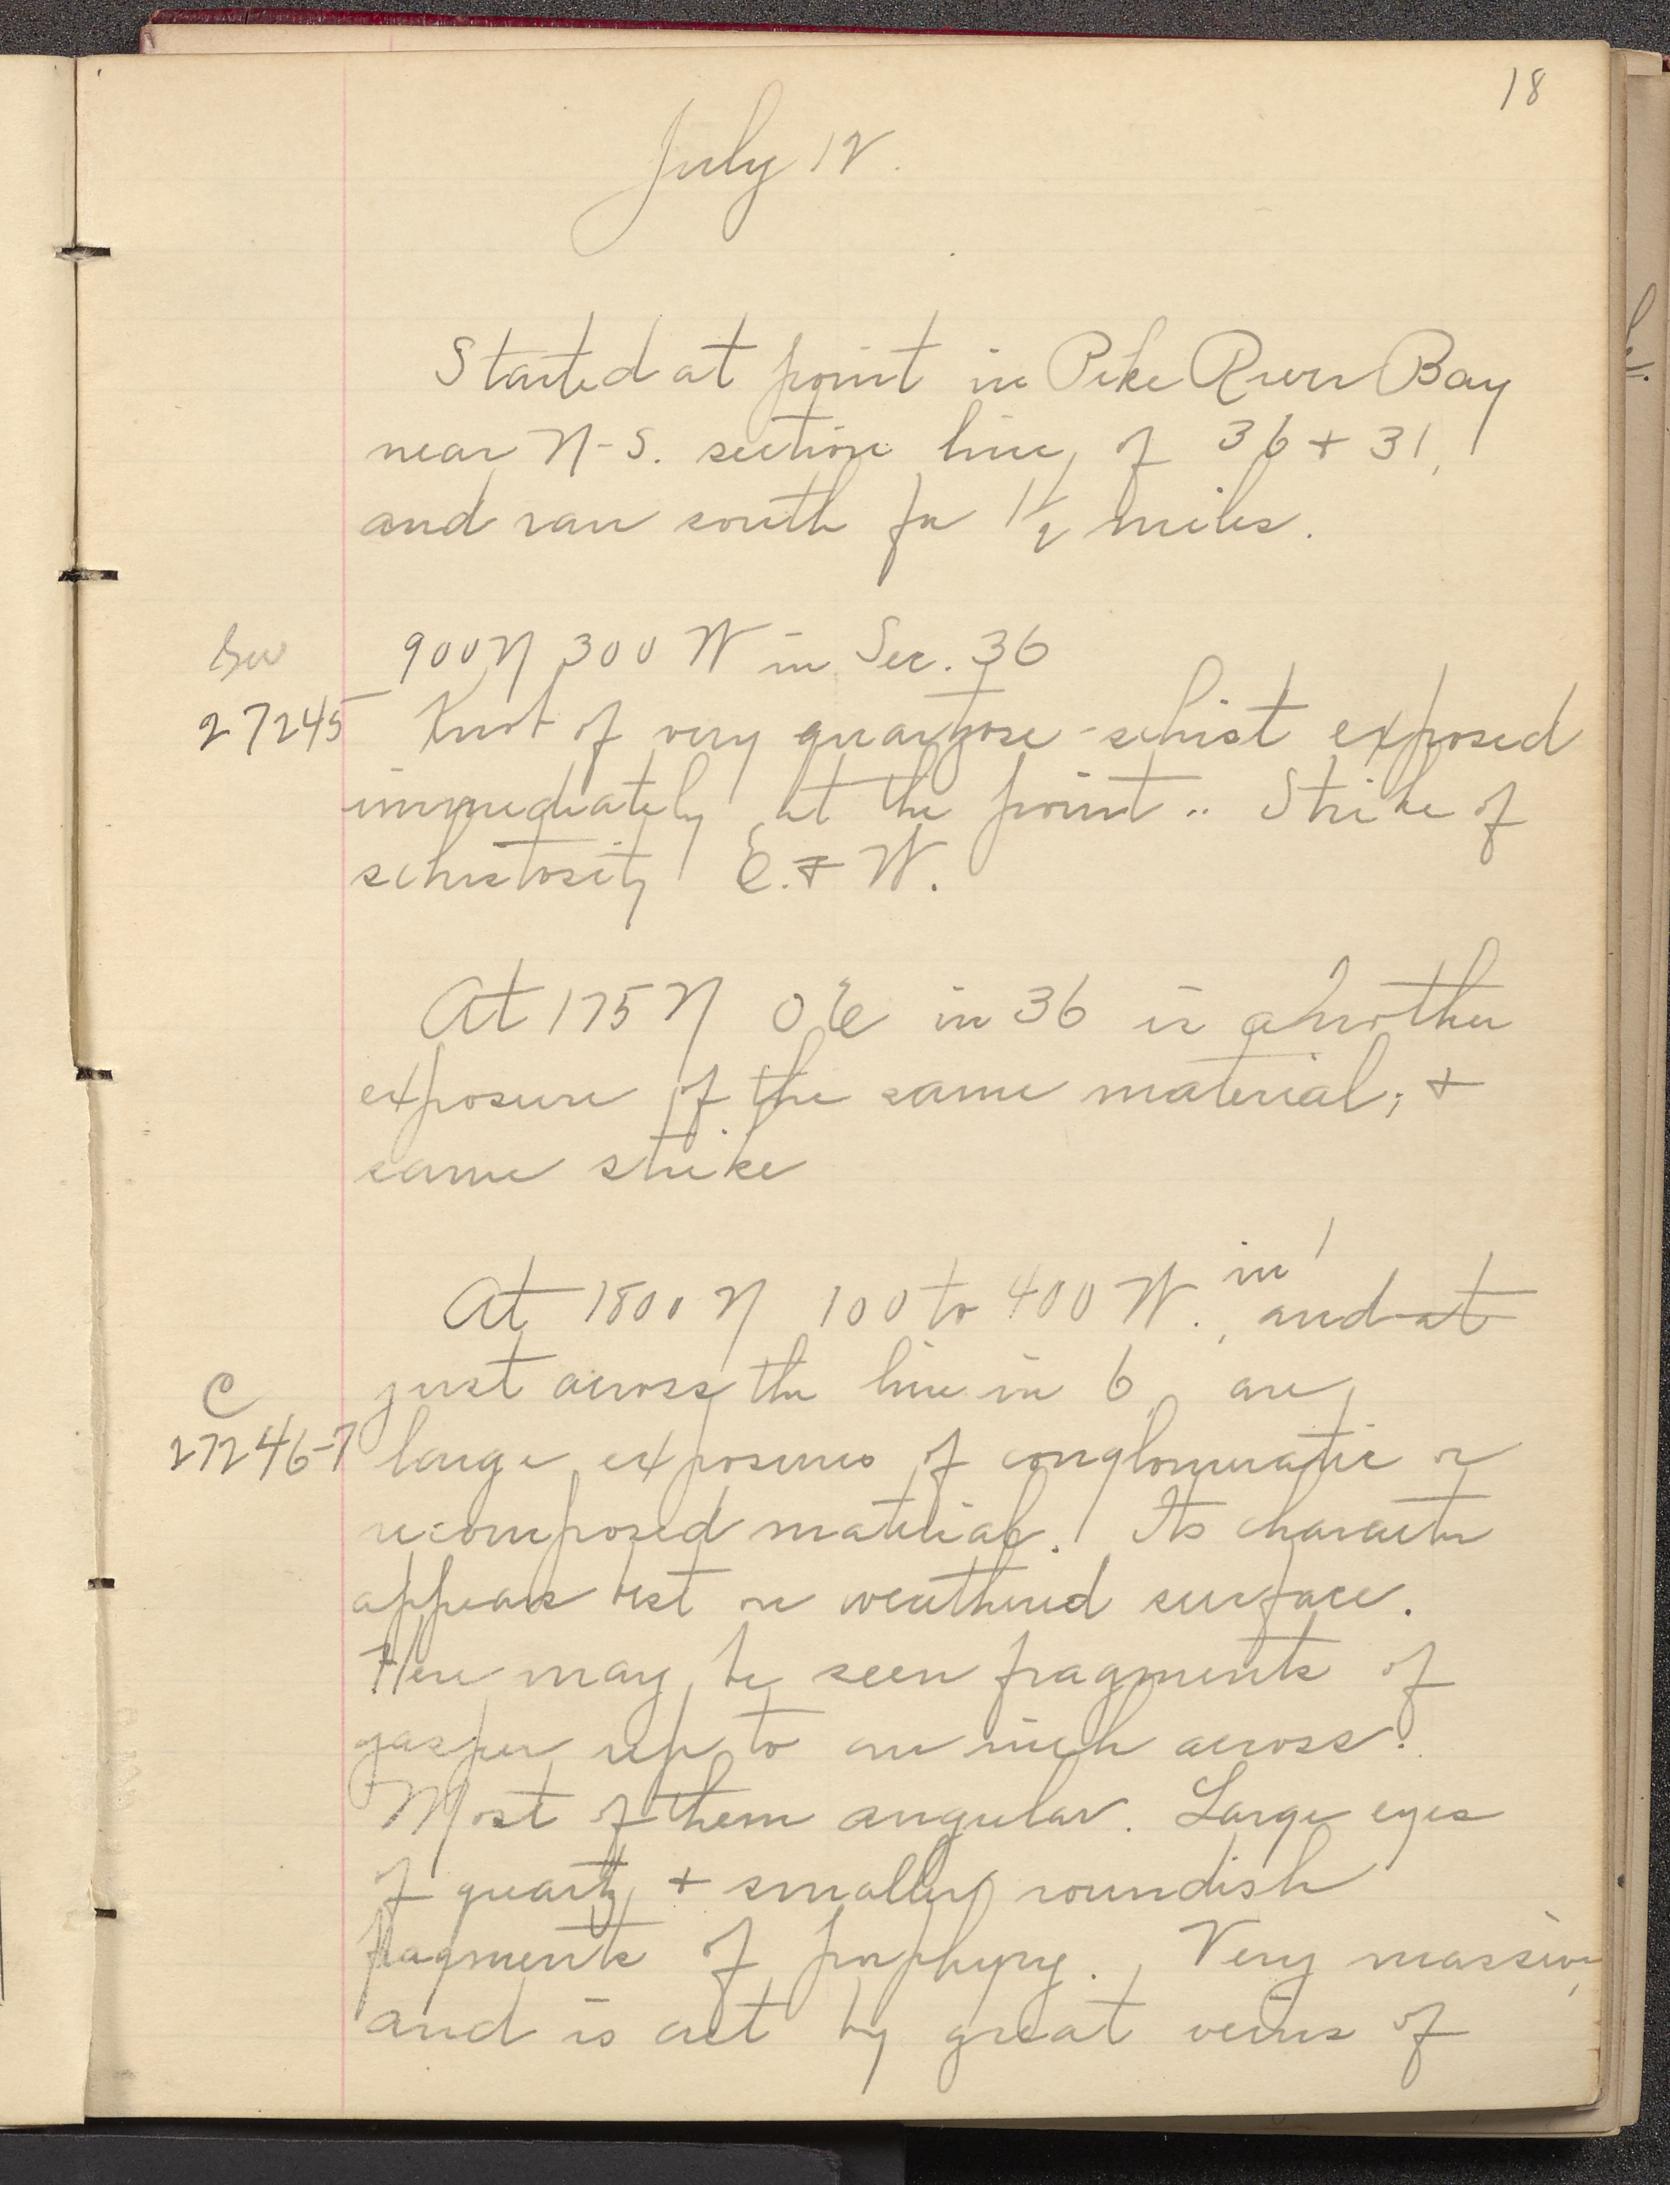 18
July 12.
Started at point in Pike River Bay
near N-S. section line, of 36 + 31,
and ran south for 1 1/2 miles.
900 N 300 W in Sec. 36
27245 Knob of very quartzose-schist exposed
immediately at the point.. Strike of
schistosity E. + W.
At 175 N 0 E in 36 is another
exposure of the same material; +
same strike
At 1800 N 100 to 400 W. in 1, and at
just across the line in 6 are
C
27246-7 large exposures of conglomeratic or
recomposed material. Its character
appears best on weathered surface.
Here may be seen fragments of
jasper up to an inch across.
Most of them angular. Large eyes
of quartz, + smaller roundish
fragments of porphyry. Very massive,
and is cut by great veins of